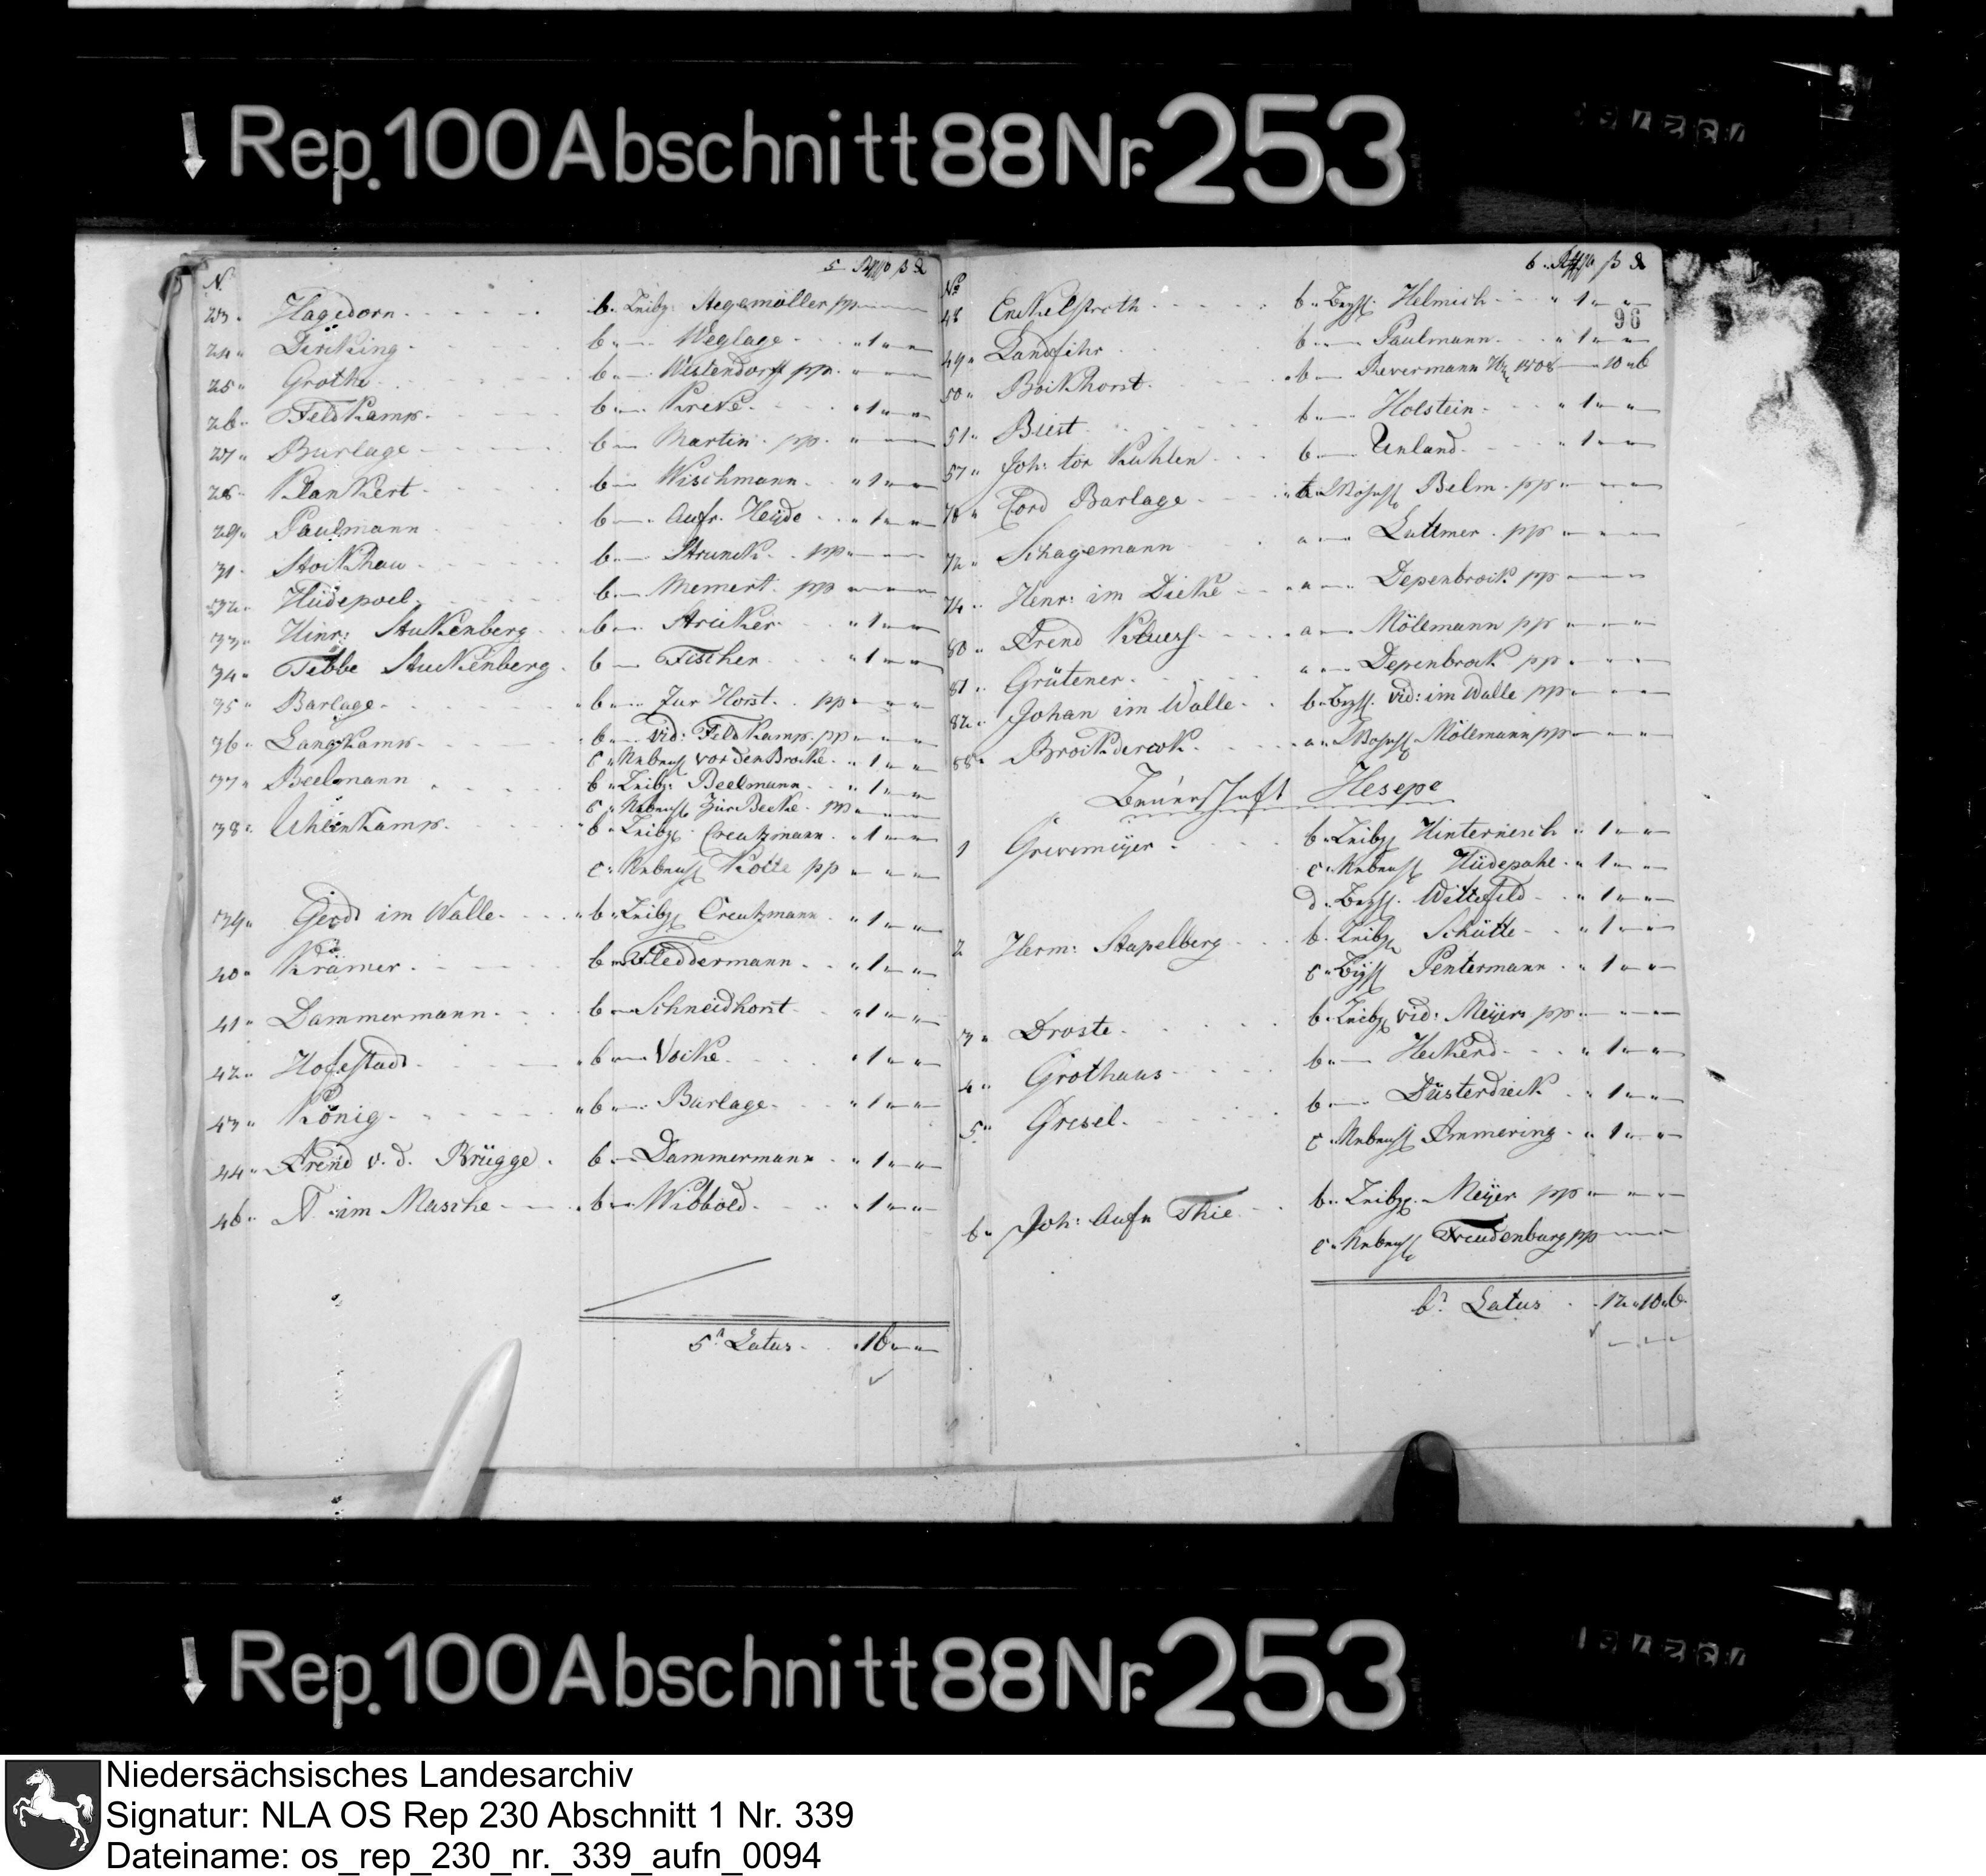 ↓ Rep. 100 Abschnitt 88 Nr. 253
N.
5
23 Hagedorn b. Leibz. Stegemöller pp
24 Dürcking b. Weglage 1
25 Grothe b. Westendorff pp.
26 Feldkamp b. Kreke 1
27 Burlage b. Martin pp.
28 Klankert b. Wischmann 1
29 Paulmann b. Aufr. Heyde 1
31 Stockhau b. Strunck pp
32 Hüdepoel b. Memert pp
33 Hinr: Stuckenberg b. Stricker 1
34 Tebbe Stuckenberg b. Fischer 1
35 Barlage b. Zur Horst pp
36 Langkamp b. vid: Feldkamp pp
c. Nebenh. vor den Brocke 1
37 Beelmann b. Leibz. Beelmann 1
c. Nebenh. Zur Becke pp
38 Uhlenkamp b. Leibz. Creutzmann 1
c. Nebenh. Kotte pp
39 Gerd im Walle b. Leibz. Creutzmann 1
40 Krämer b. Fleddermann 1
41 Dammermann b. Schneidhorst 1
42 Hofestadt b. Vocke 1
43 König b. Barlage 1
44 Arend v. d. Brügge b. Dammermann 1
46 N. im Masche b. Wibbold 1
5ᵗ Latus 16
No
6
96
48 Enckelstroth b. Helmich 1
49 Landfehr b. Paulmann 1
50 Böckhorst b. Revermann 1808 10 6
51 Biest b. Holstein 1
57 Joh: tor Kuhlen b. Unland 1
70 Cord Barlage Belm pp
72 Schagemann a Luttmer pp
74 Henr: im Diecke a Depenbrock pp
80 Arend Klues a Mölemann pp
81 Grütener a Depenbrock pp
82 Johan im Walle b. vid: im Walle pp
88 a Mölemann pp
Bauerschaft Hesepe
1 Grevemeyer b. Leibz. Hinternesch 1
c. Nebenh. Hüdepohe 1
d. Wittefeld 1
2 Herm: Stapelberg b. Leibz. Schütte 1
c. Pentermann 1
3 Droste b. Leibz. vid: Meyers pp
4 Grothaus b. Heckerd 1
5 Gresel b. Düsterdieck 1
c. Nebenh. Ammering 1
6 Joh: Aufn Thie b. Leibz. Meyer pp
c. Nebenh. Freudenburg pp
6ᵗ Latus 12 10 6
↓ Rep. 100 Abschnitt 88 Nr. 253
Niedersächsisches Landesarchiv
Signatur: NLA OS Rep 230 Abschnitt 1 Nr. 339
Dateiname: os_rep_230_nr._339_aufn_0094